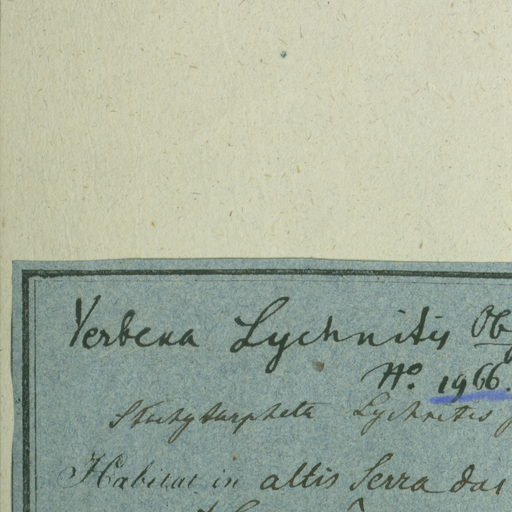 Verbena Lychnitis Ob
No. 1966.
Stachytarpheta Lychnitis
Habitat in altis Serra das